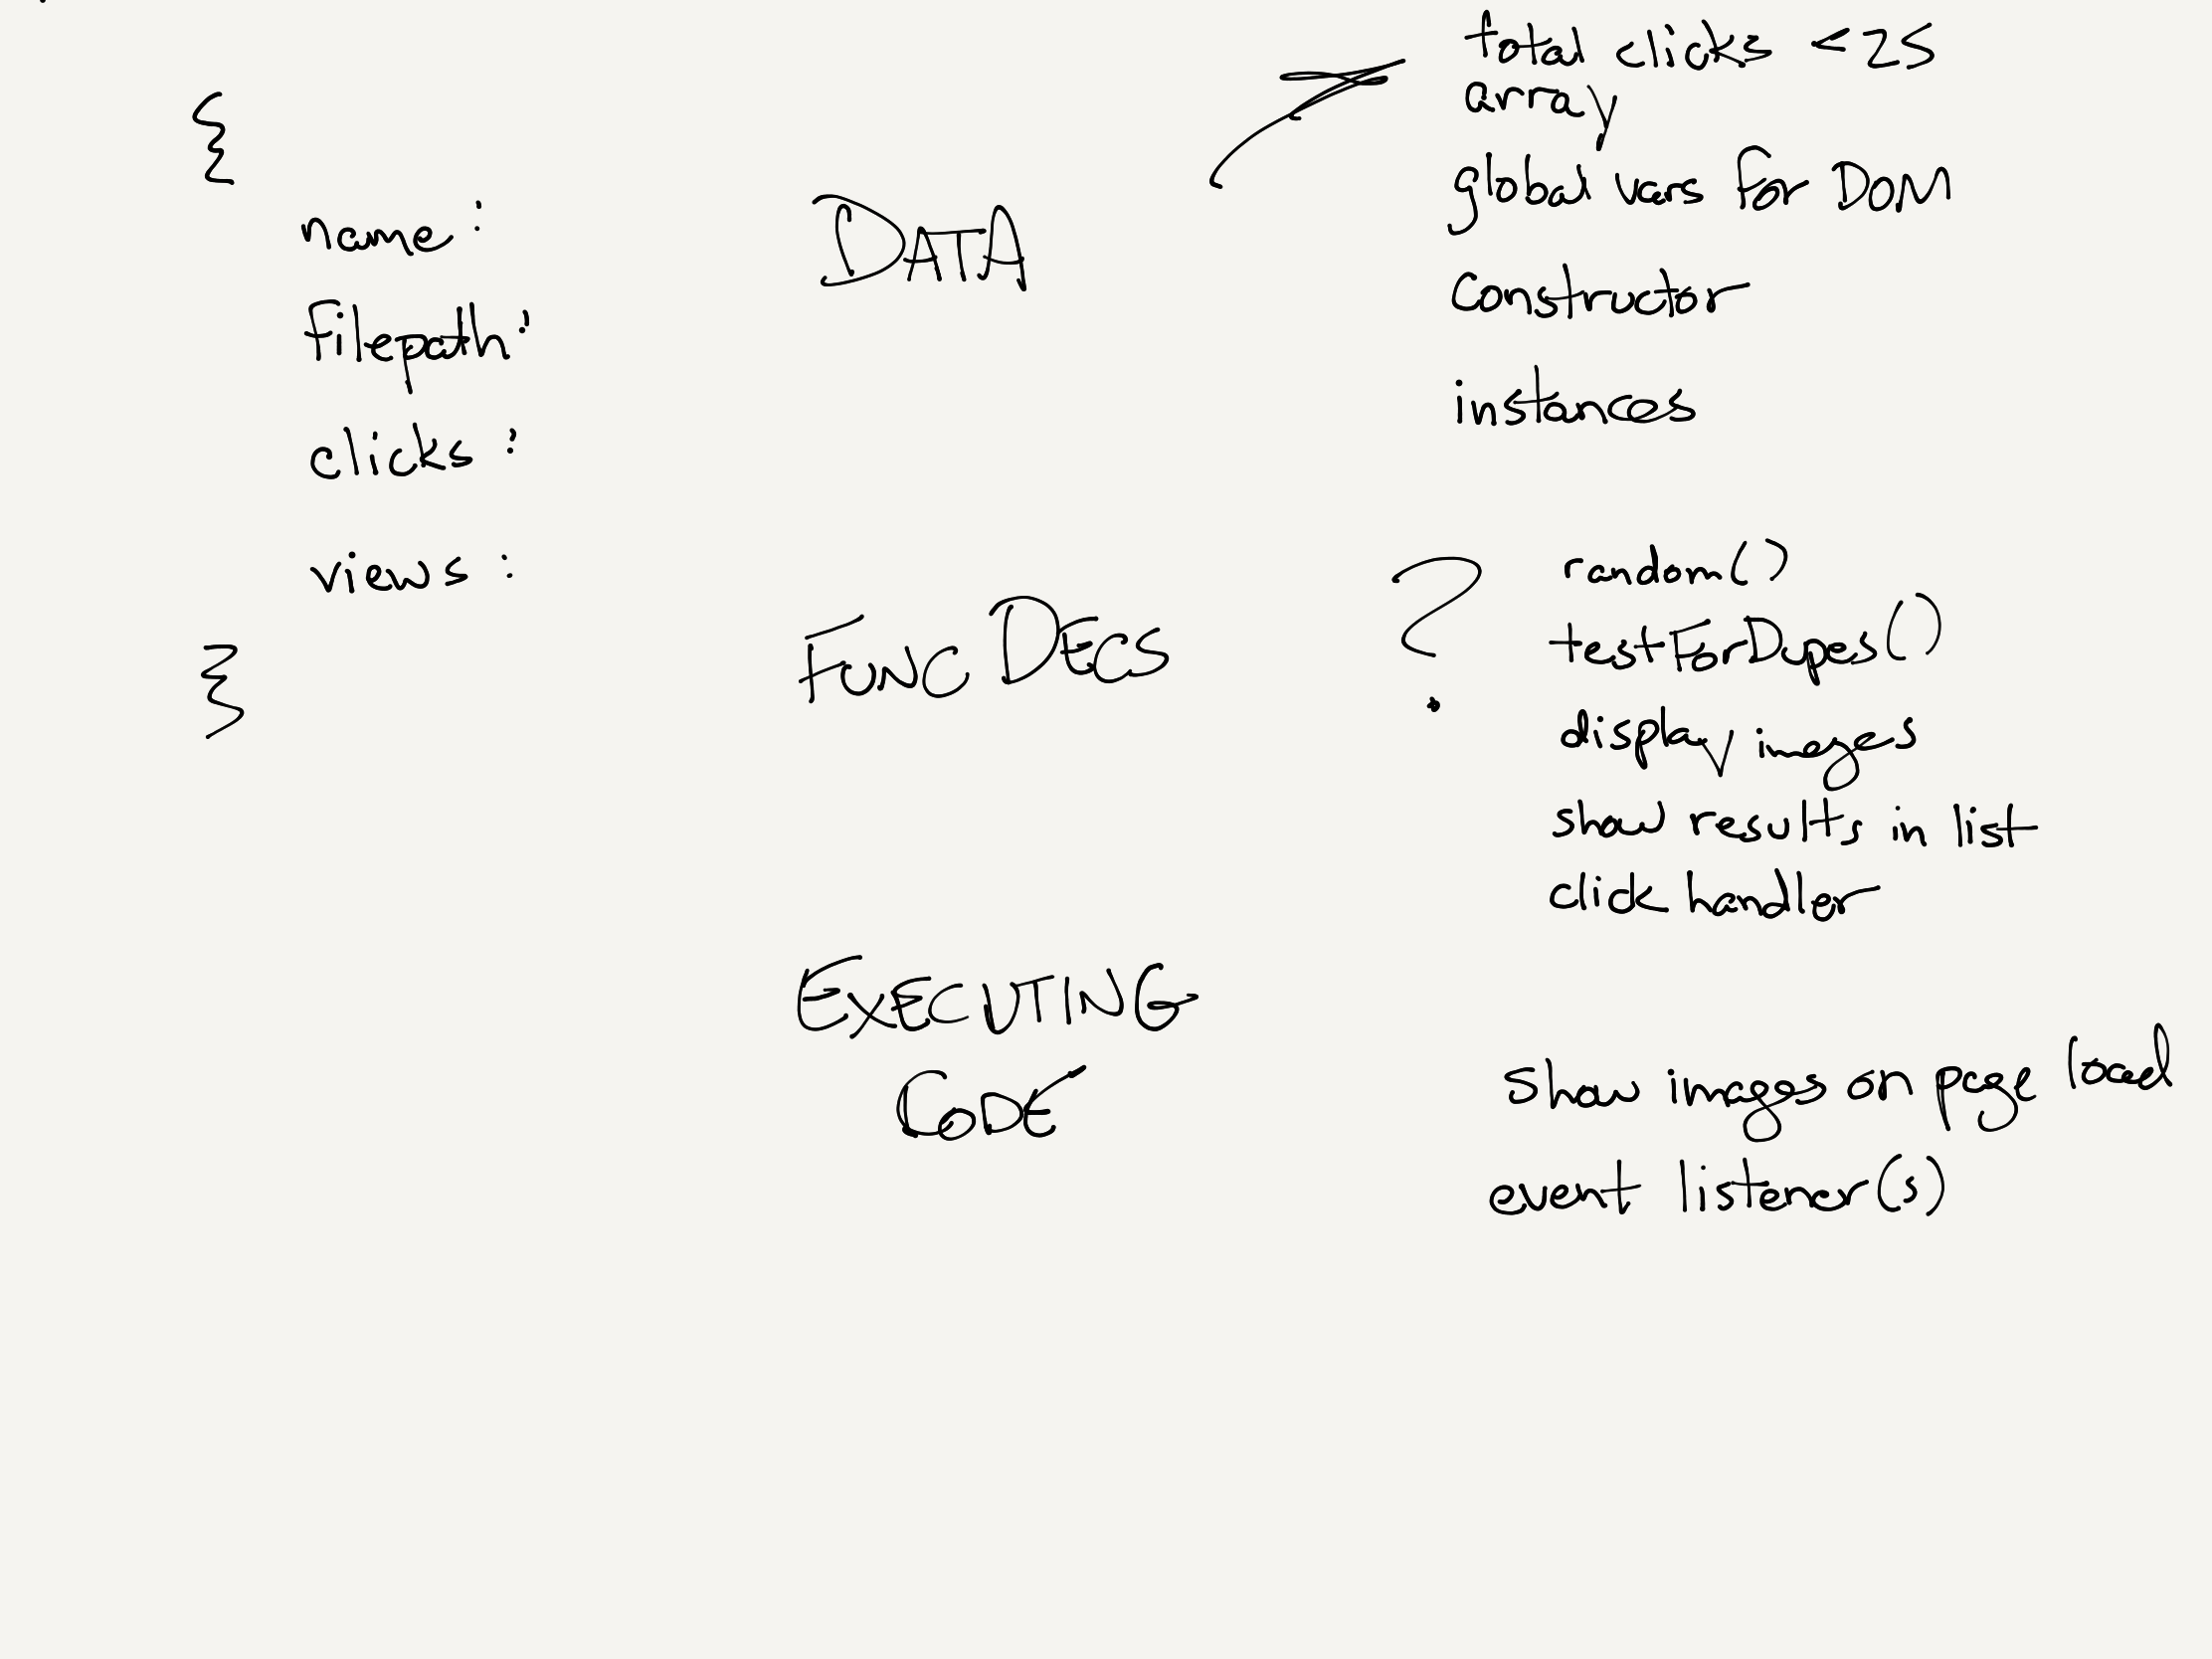 {
name:
filepath:
clicks:
views:
}
DATA
total clicks < 25
array
global vars for DOM
constructor
instances
FUNC DECS
?
random()
testForDupes()
display images
show results in list
click handler
EXECUTING
CODE
show images on page load
event listener(s)